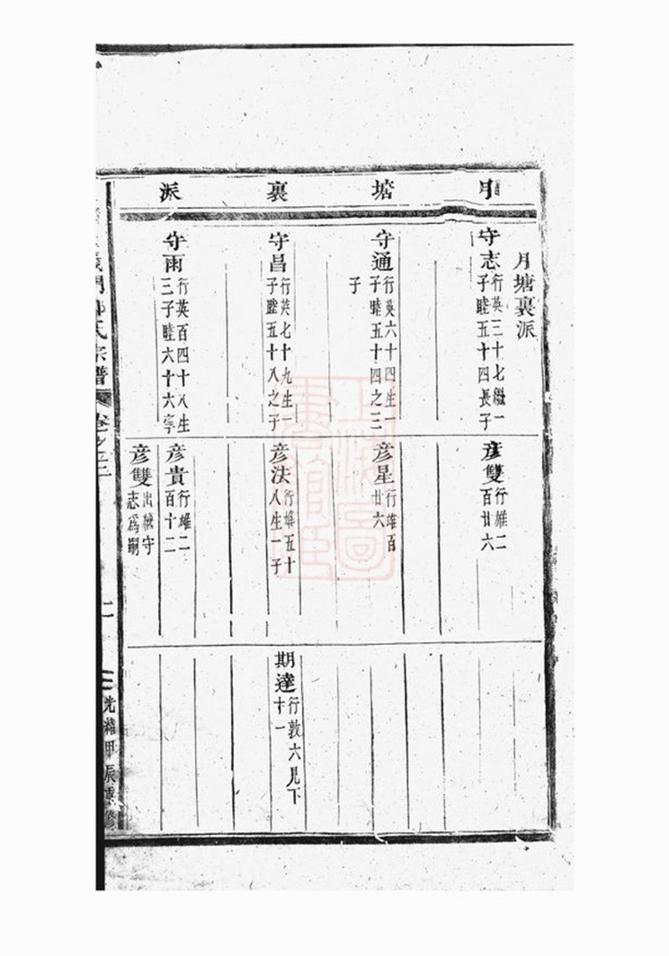 月塘裏派
月塘裏派
守志
行英三十七繼一
子睦五十四長子
守通
行英六十四生一
子睦五十四之三
子
守昌
行英七十九生一
子睦五十八之子
守雨
行英百四十八生
三子睦六十六寧
彥雙
行雄二
百廿六
彥星
行雄百
廿六
彥法
行雄五十
八生一子
彥貴
行雄二
百十二
彥雙
出繼守
志爲嗣
期達
行敦六見下
十一
義門
氏宗譜
卷之
二
光緒甲辰重修